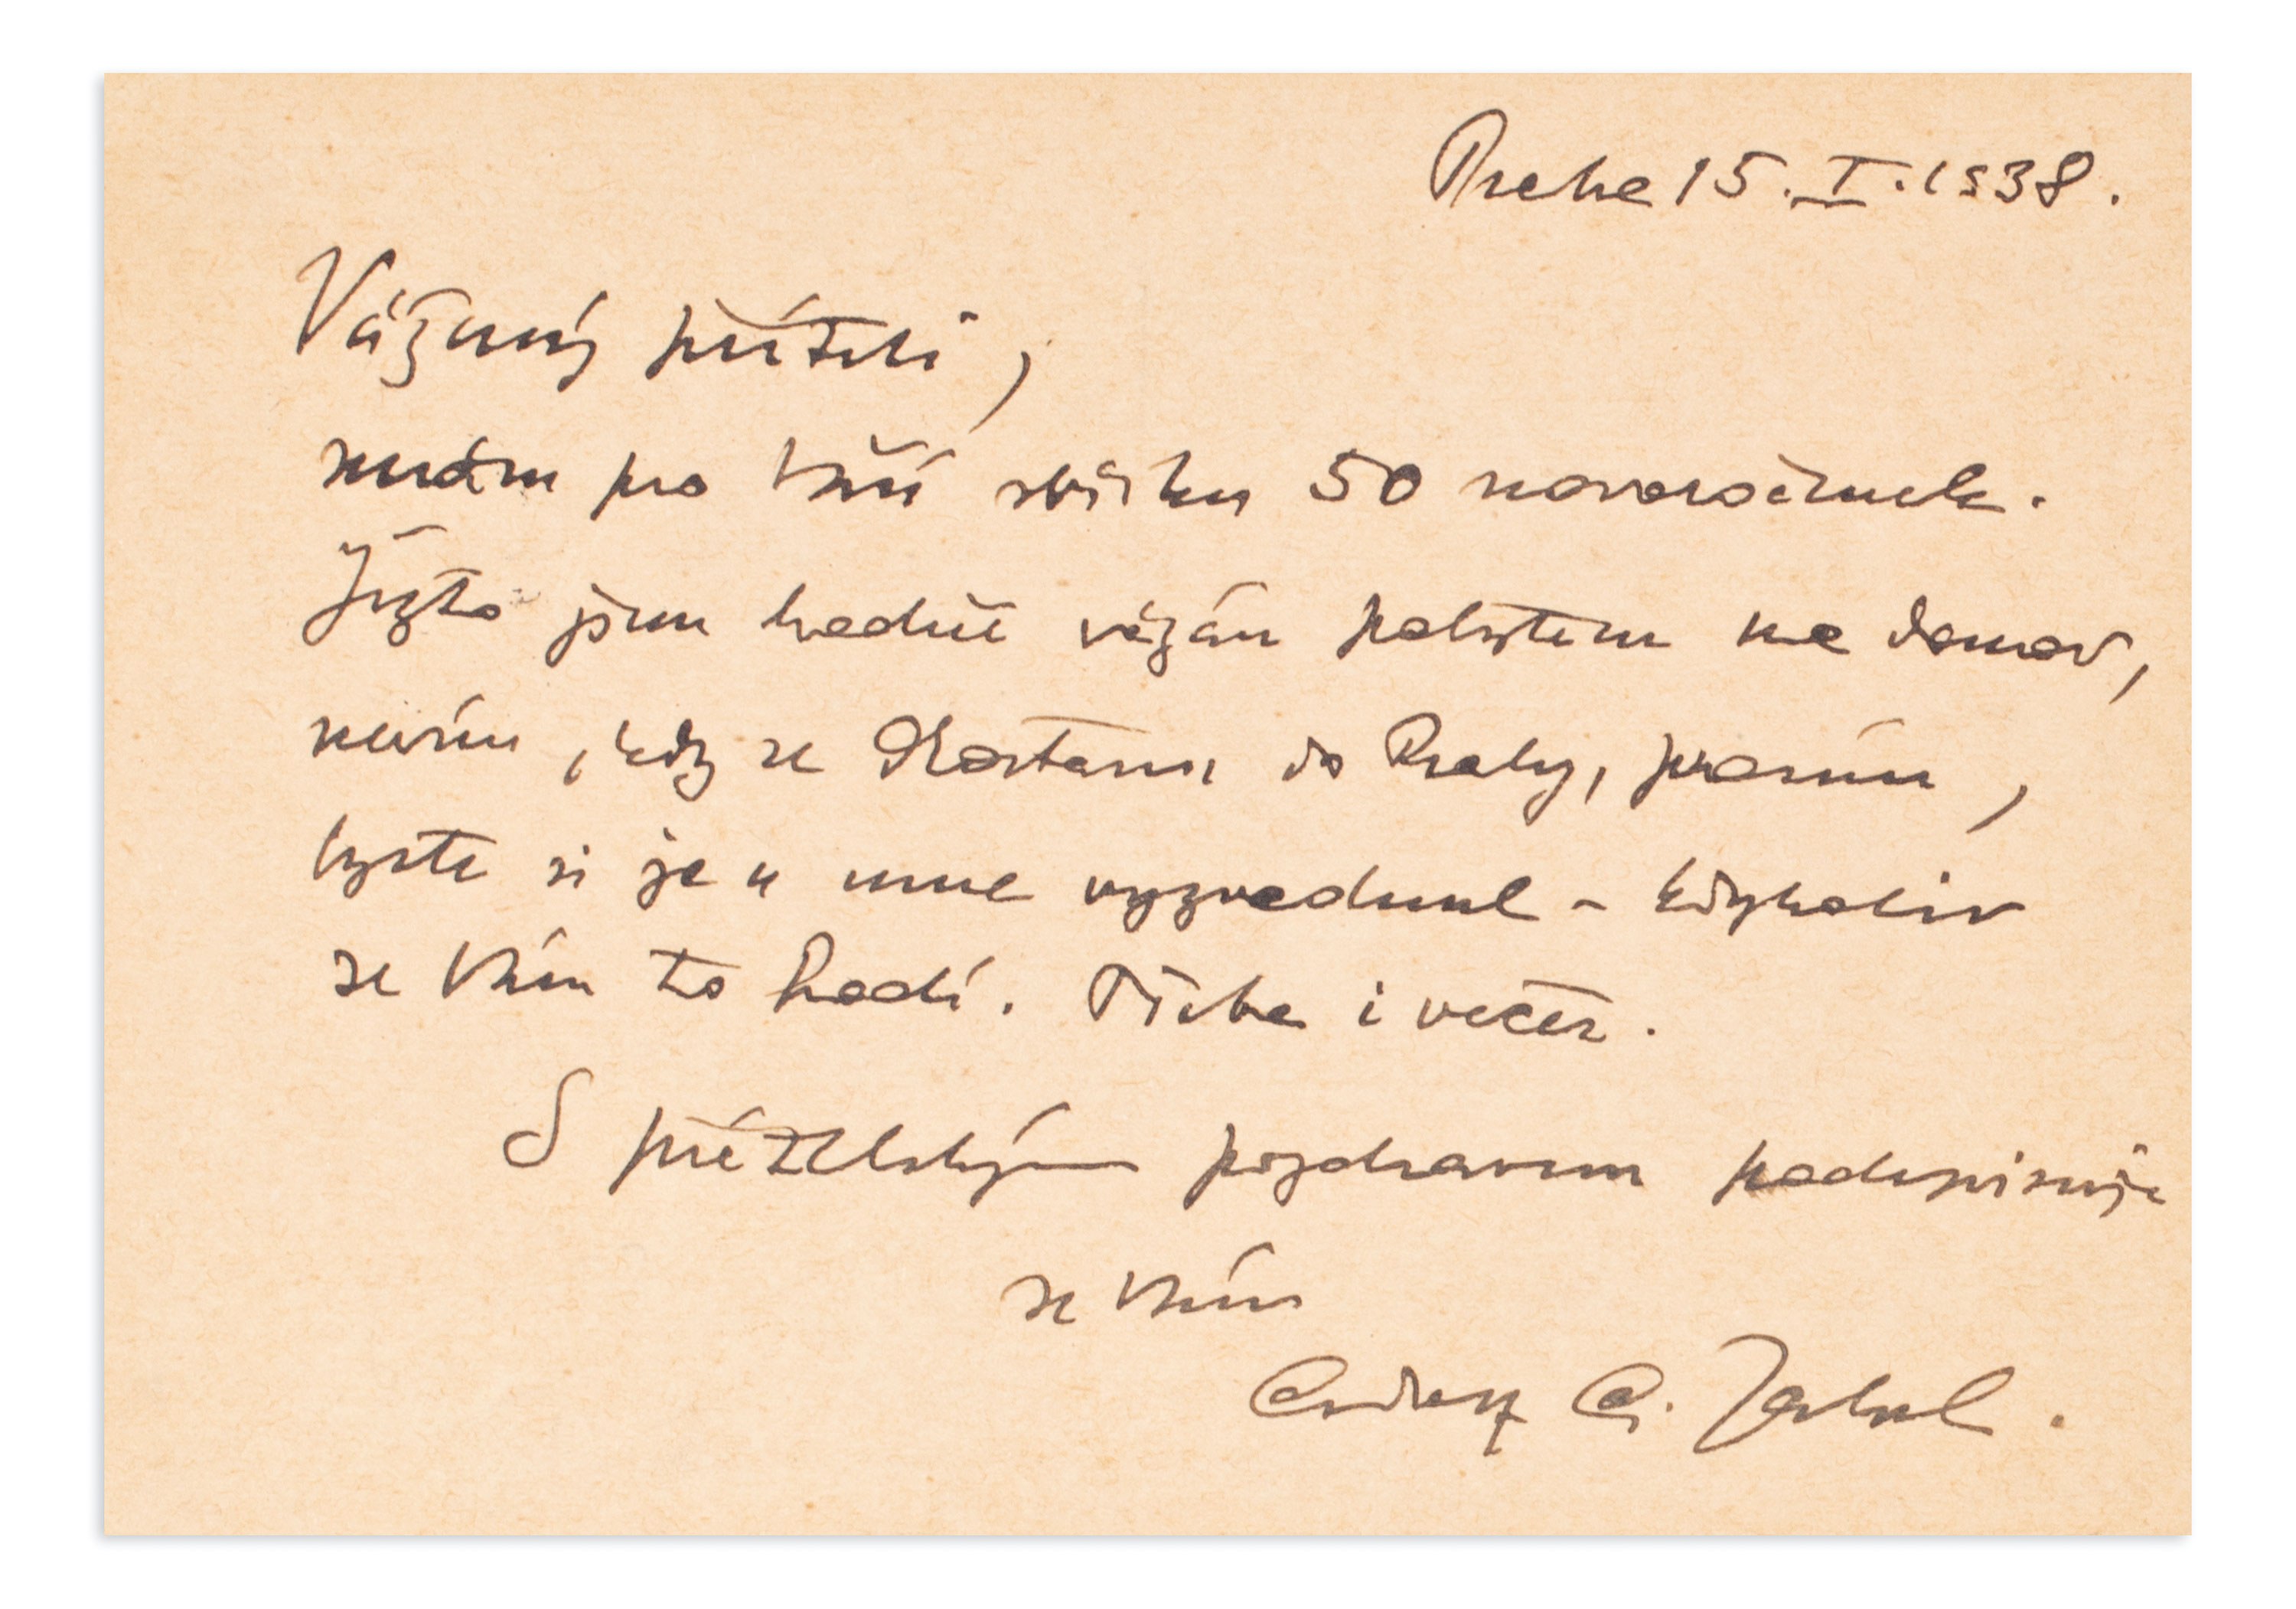 Praha 15. I. 1938.
Vážený příteli,
mám pro Vaši sbírku 50 novoročenek.
Ježto jsem hodně vázán pobytem na domov,
nevím, kdy se dostanu do Prahy, prosím,
byste si je u mne vyzvednul - kdykoliv
se Vám to hodí. Třeba i večer.
S přátelským pozdravem podepisuje
se Vám